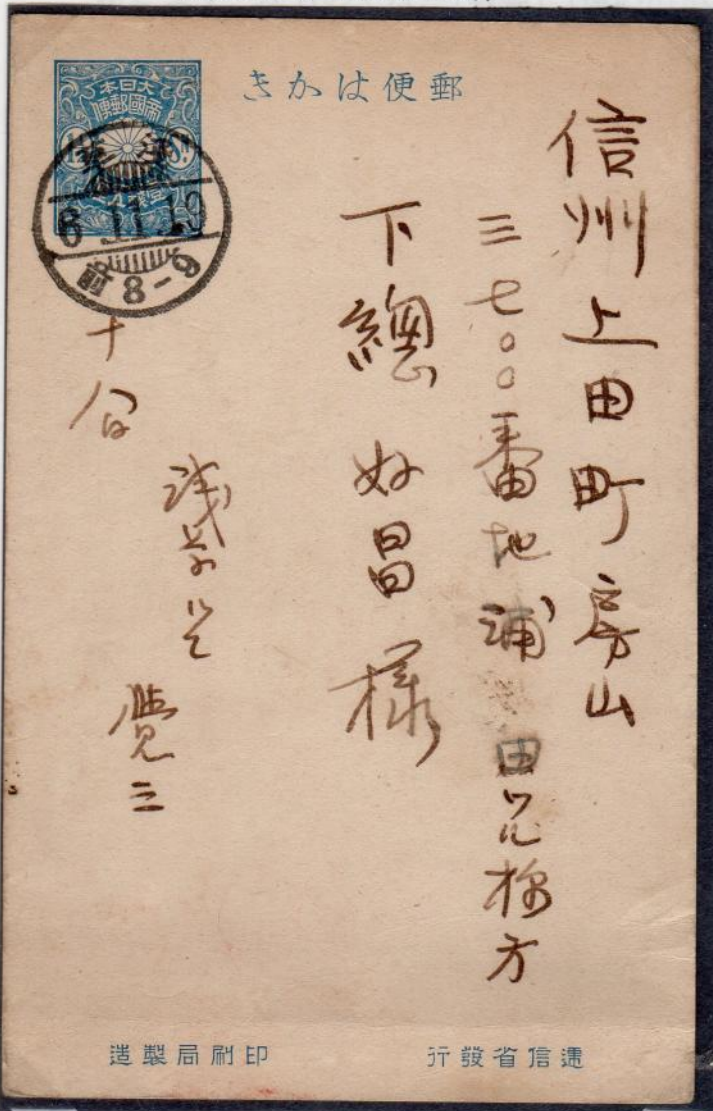 郵便はかき
大日本
帝國郵便
6.11.13
前8-9
信州上田町房山
三七〇〇番地浦田
様方
下總好昌様
十合
覺三
逓信省發行
印刷局製造